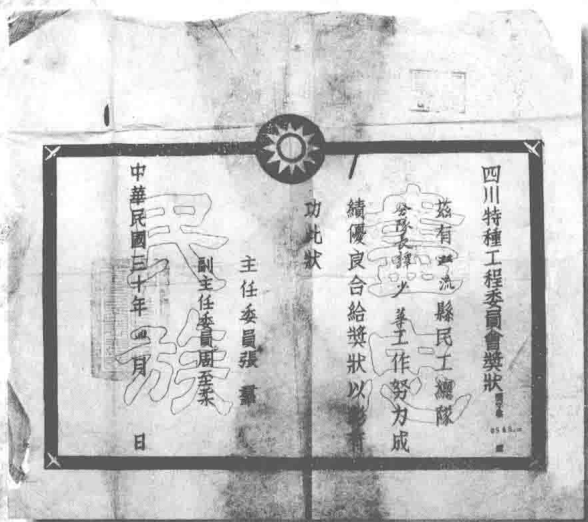 四川特種工程委員會獎狀
茲有双流縣民工總隊
分隊長 少 工作努力成
績優良合給獎狀以彰有
功此狀
主任委員張羣
副主任委員周至柔
中華民國三十年四月 日
盡忠
民族